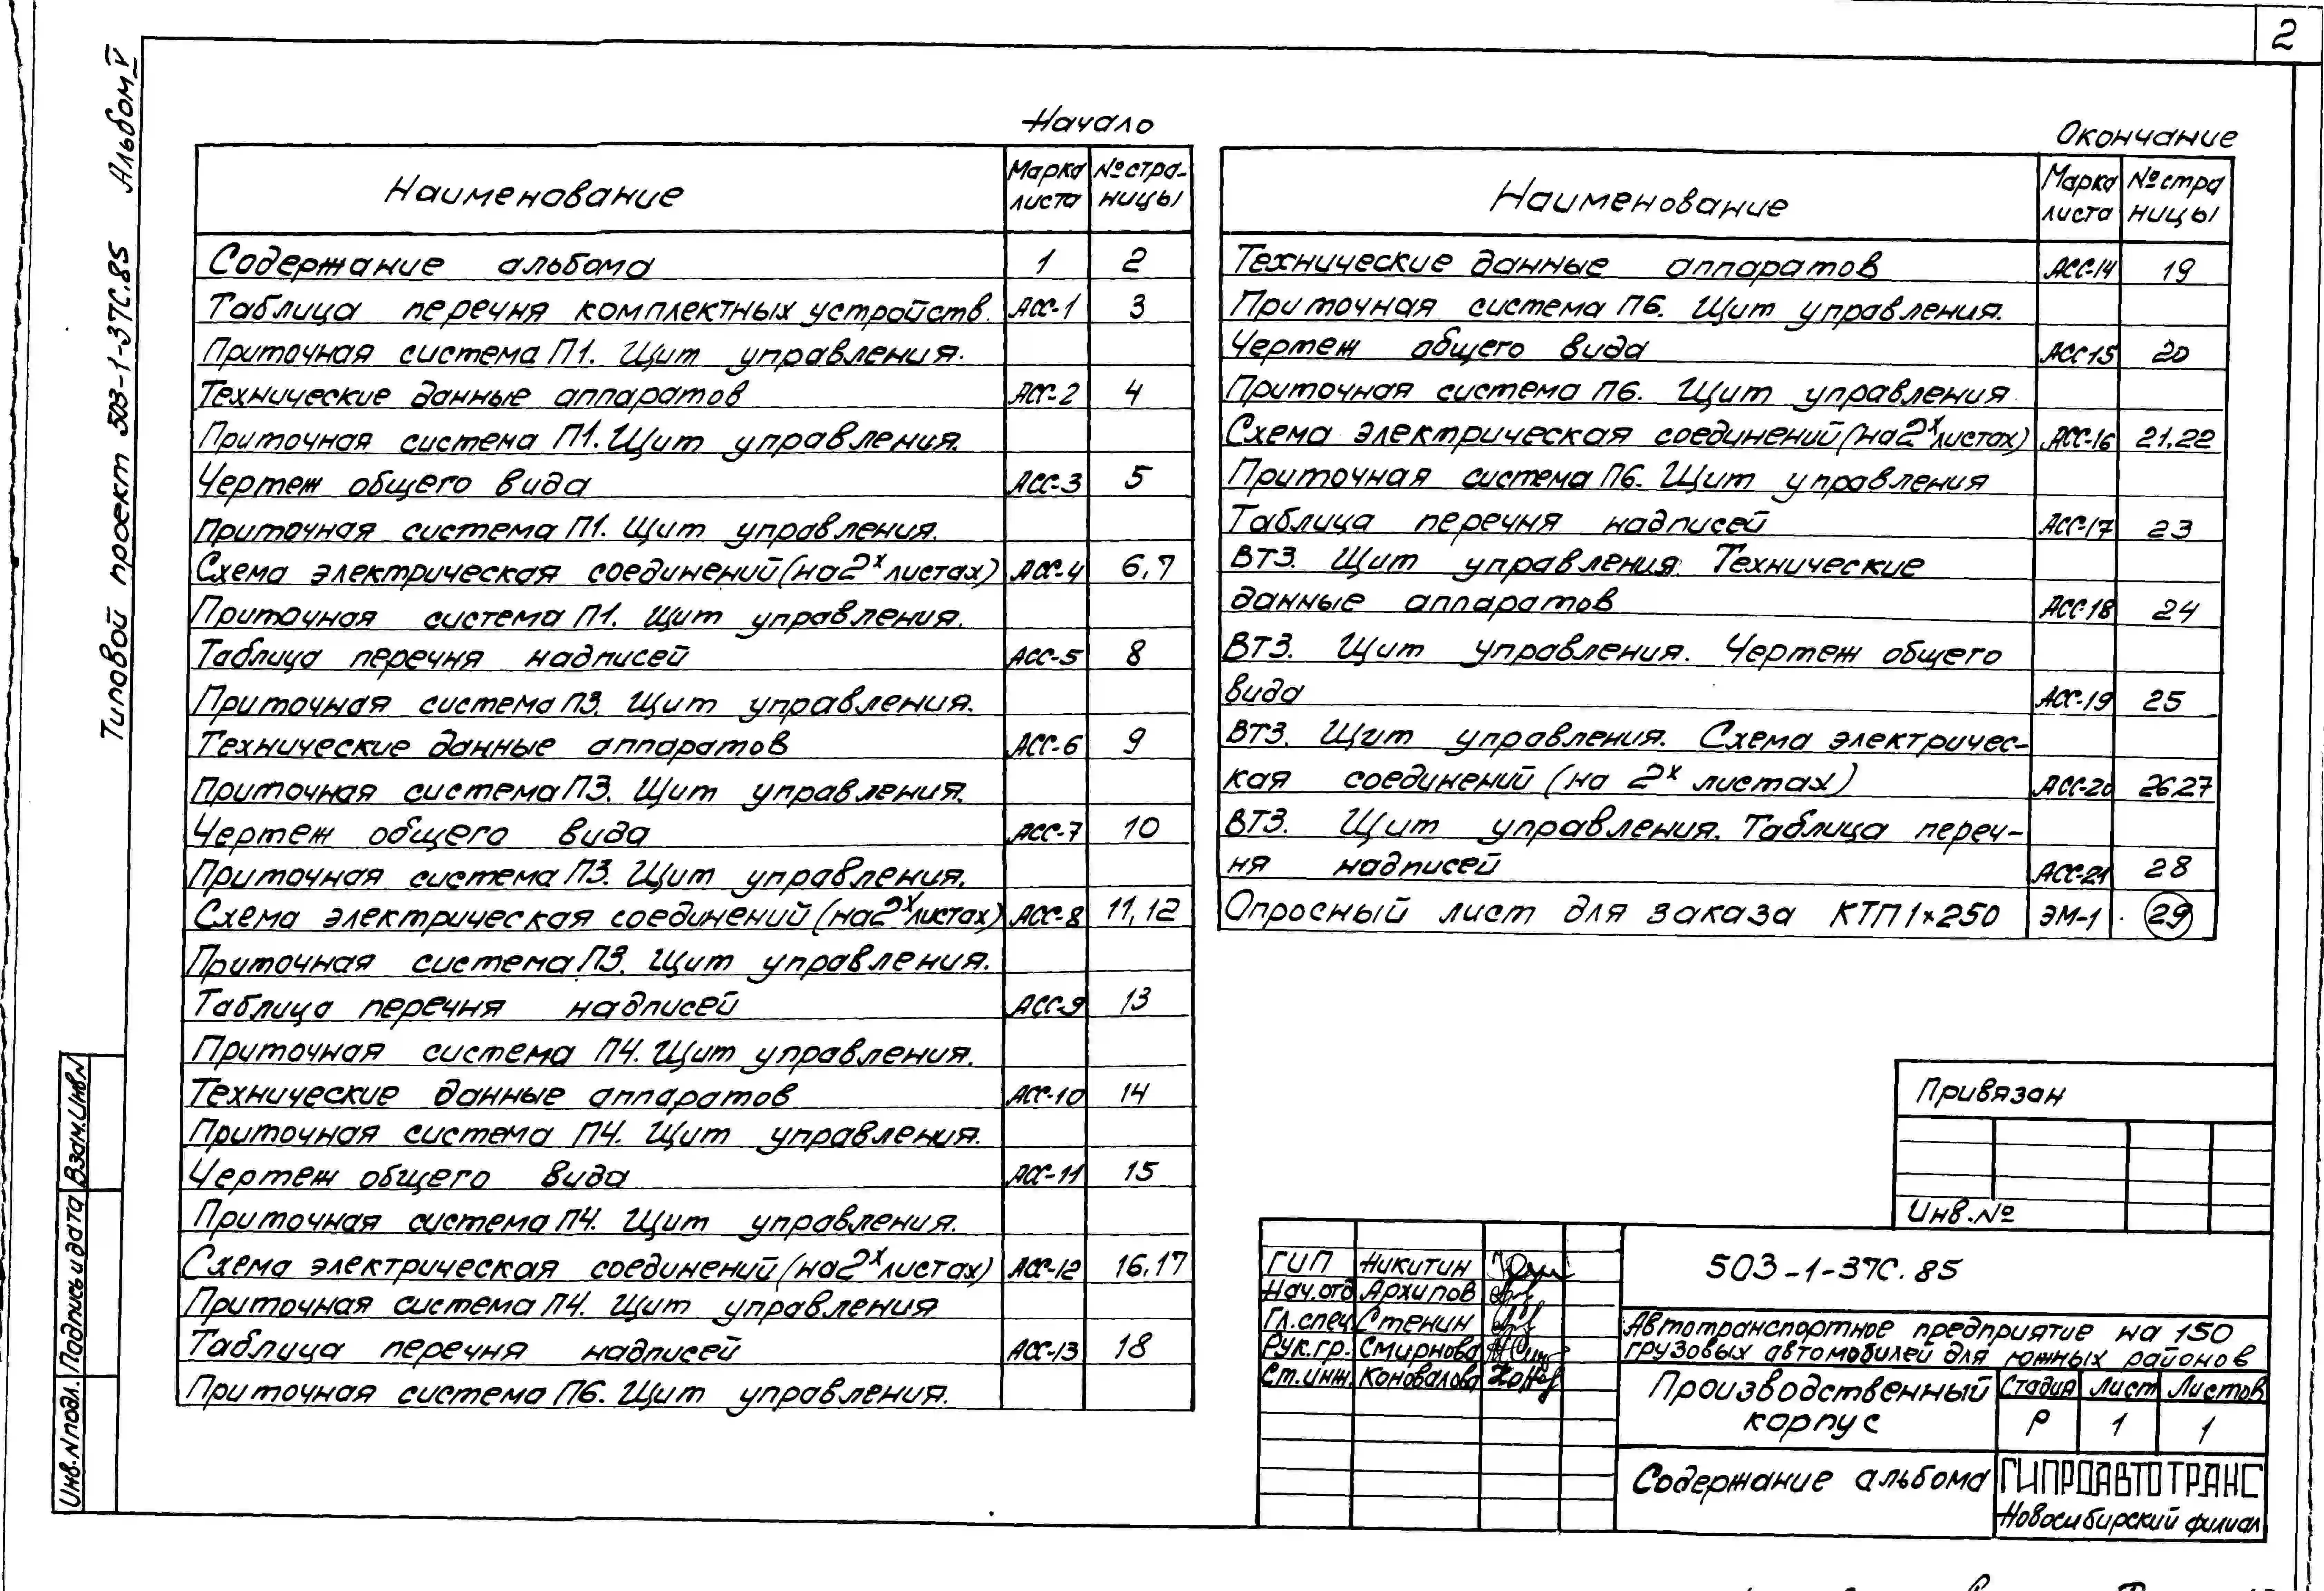 2
Типовой проект 503-1-37С.85 Альбом V
Начало
Наименование Марка листа №стра-ницы
Содержание альбома 1 2
Таблица перечня комплектных устройств. АСС-1 3
Приточная система П1. Щит управления.
Технические данные аппаратов АСС-2 4
Приточная система П1. Щит управления.
Чертеж общего вида АСС-3 5
Приточная система П1. Щит управления.
Схема электрическая соединений (на 2х листах) АСС-4 6,7
Приточная система П1. Щит управления.
Таблица перечня надписей АСС-5 8
Приточная система П3. Щит управления.
Технические данные аппаратов АСС-6 9
Приточная система П3. Щит управления.
Чертеж общего вида АСС-7 10
Приточная система П3. Щит управления.
Схема электрическая соединений (на 2х листах) АСС-8 11,12
Приточная система П3. Щит управления.
Таблица перечня надписей АСС-9 13
Приточная система П4. Щит управления.
Технические данные аппаратов АСС-10 14
Приточная система П4. Щит управления.
Чертеж общего вида АСС-11 15
Приточная система П4. Щит управления.
Схема электрическая соединений (на 2х листах) АСС-12 16,17
Приточная система П4. Щит управления
Таблица перечня надписей АСС-13 18
Приточная система П6. Щит управления.
Окончание
Наименование Марка листа №стра ницы
Технические данные аппаратов АСС-14 19
Приточная система П6. Щит управления.
Чертеж общего вида АСС-15 20
Приточная система П6. Щит управления
Схема электрическая соединений (на 2х листах) АСС-16 21.22
Приточная система П6. Щит управления
Таблица перечня надписей АСС-17 23
ВТЗ. Щит управления. Технические
данные аппаратов АСС-18 24
ВТЗ. Щит управления. Чертеж общего
вида АСС-19 25
ВТЗ. Щит управления. Схема электричес-
кая соединений (на 2х листах) АСС-20 26,27
ВТЗ. Щит управления. Таблица переч-
ня надписей АСС-21 28
Опросный лист для заказа КТП 1×250 ЭМ-1 29
Привязан
Инв.№
ГИП Никитин
Нач.отд Архипов
Гл.спец Стенин
Рук.гр. Смирнова
Ст.инж. Коновалова
503-1-37С.85
Автотранспортное предприятие на 150
грузовых автомобилей для южных районов
Производственный
корпус
Стадия Лист Листов
Р 1 1
Содержание альбома
ГИПРОАВТОТРАНС
Новосибирский филиал
Взам.Инв№
Подпись и дата
Инв.№подл.